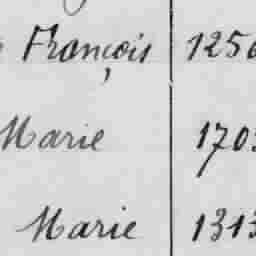 François 125
Marie 170
Marie 1313